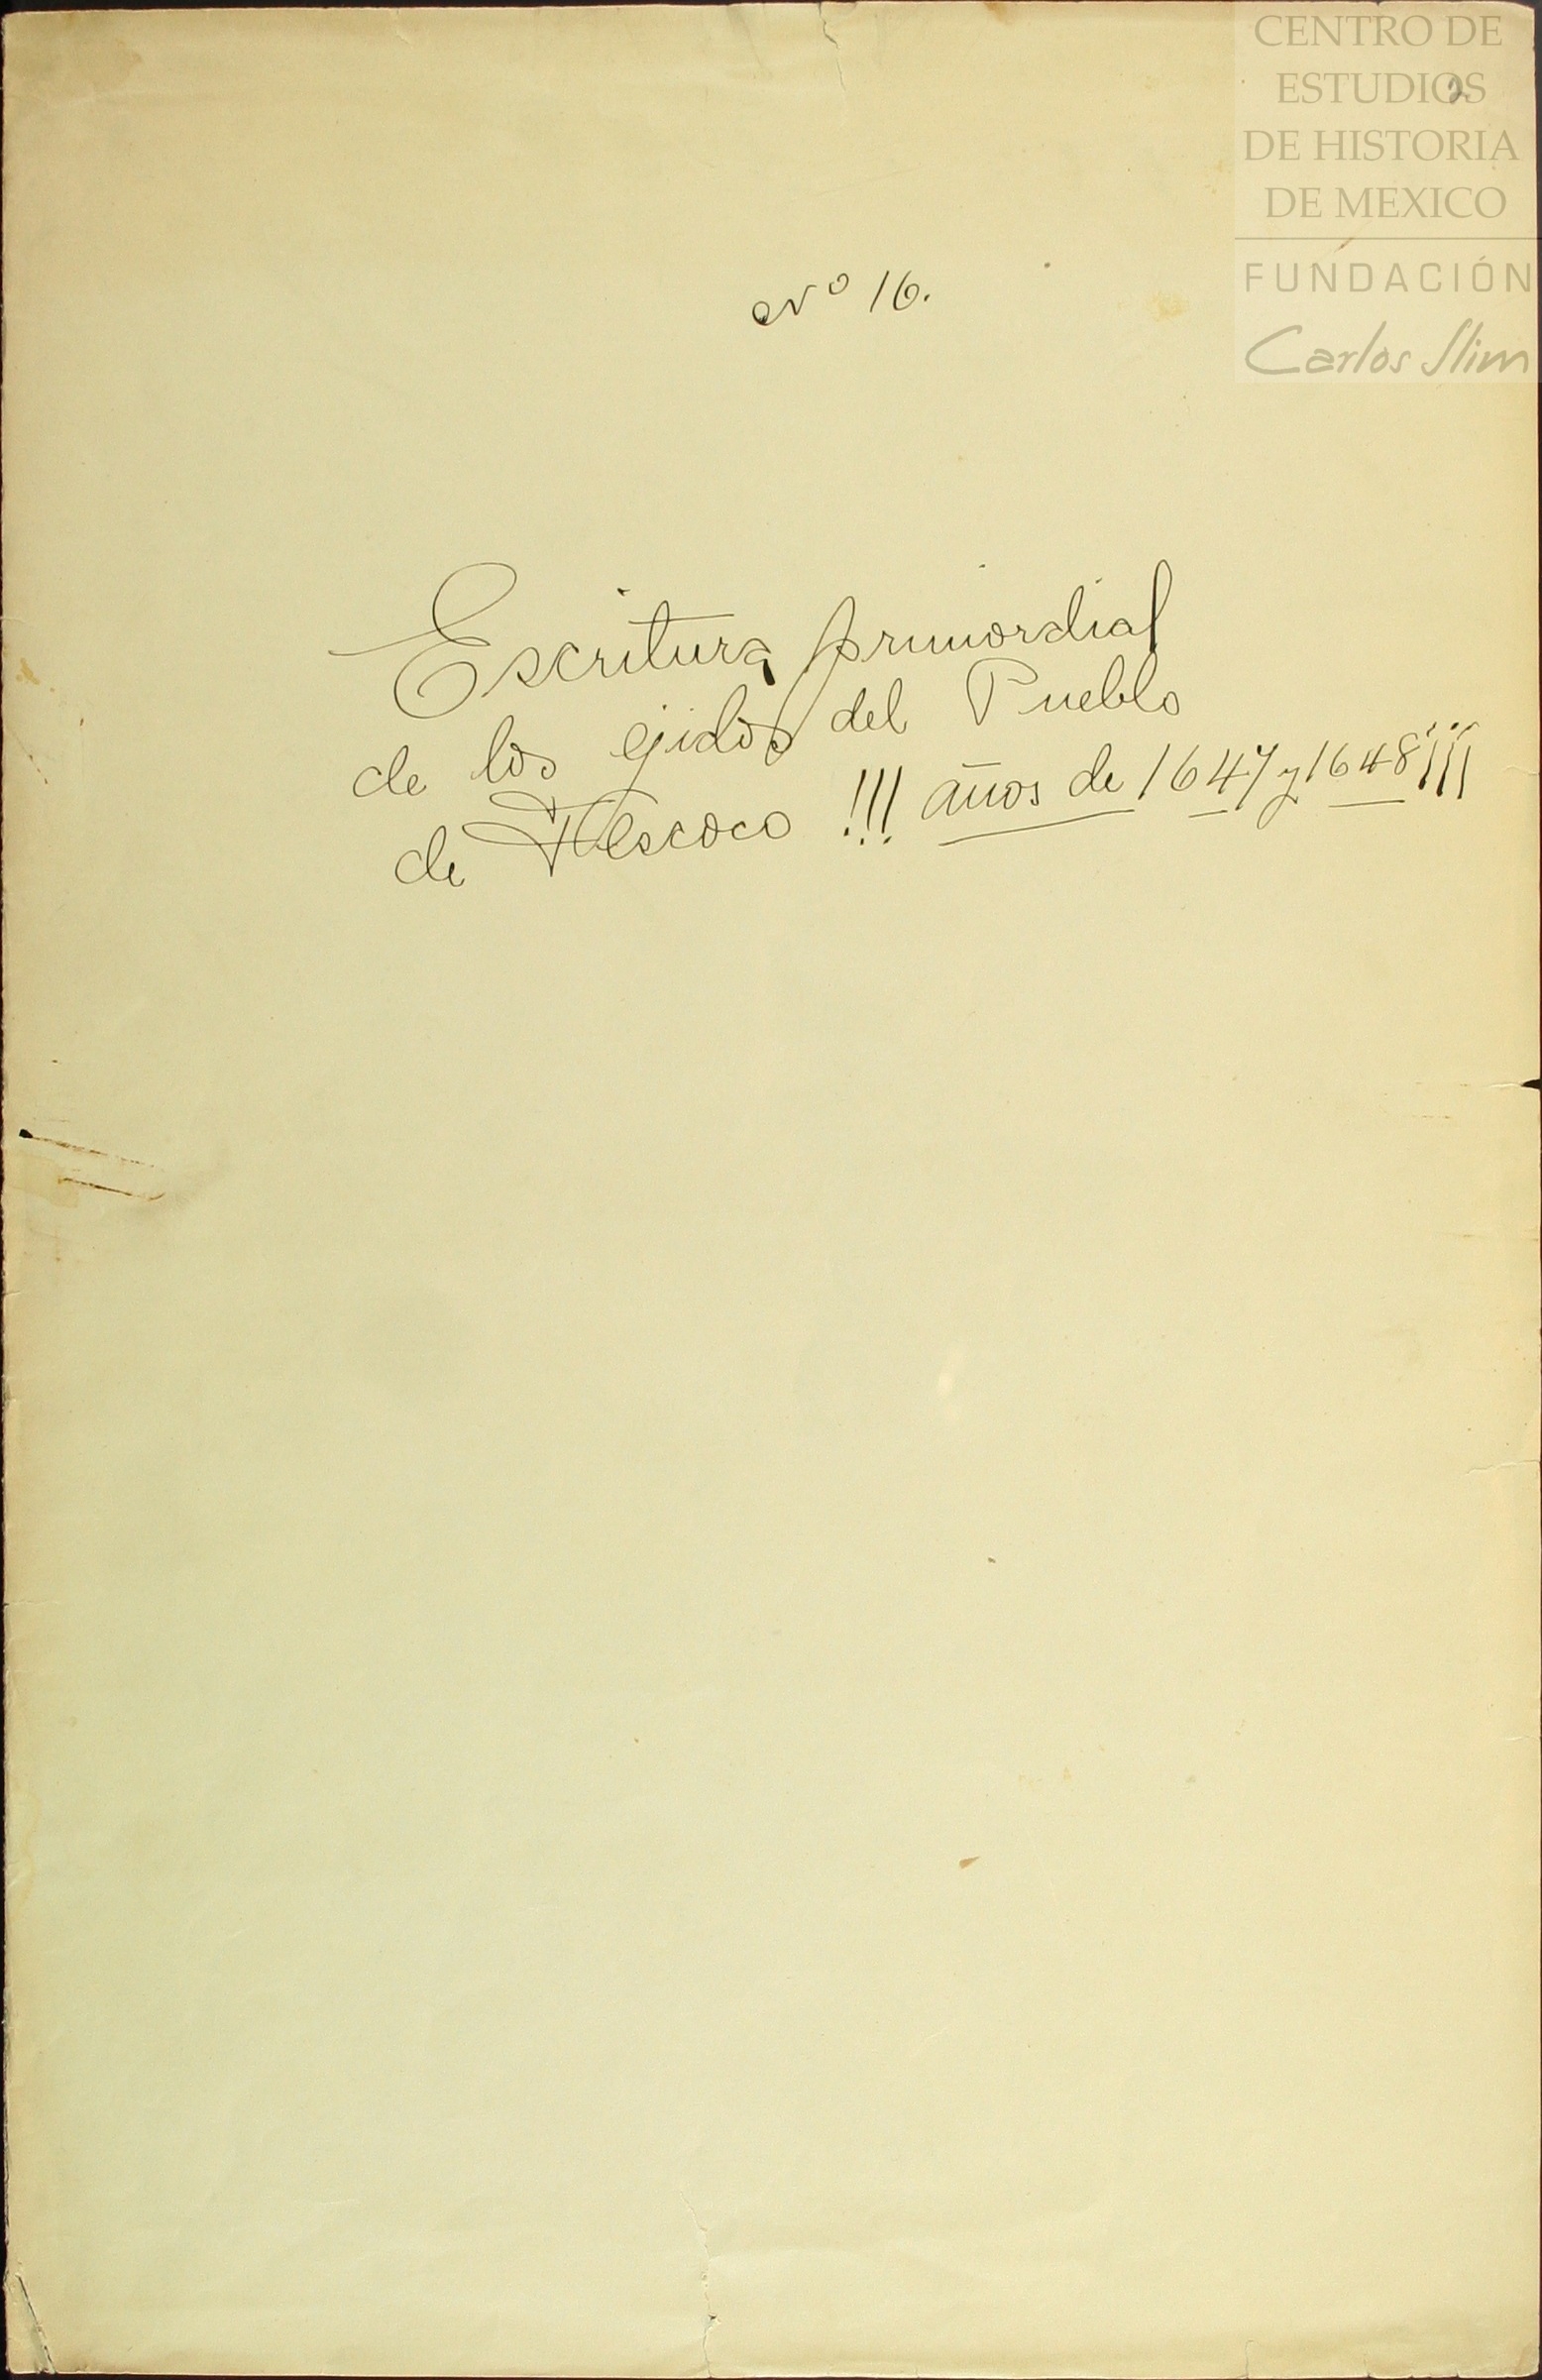 CENTRO DE
ESTUDIOS
DE HISTORIA
DE MEXICO
FUNDACIÓN
Carlos Slim
2
Nº 16.
Escritura primordial
de los ejidos del Pueblo
de Tlescoco !!! años de 1647 y 1648 ¡¡¡